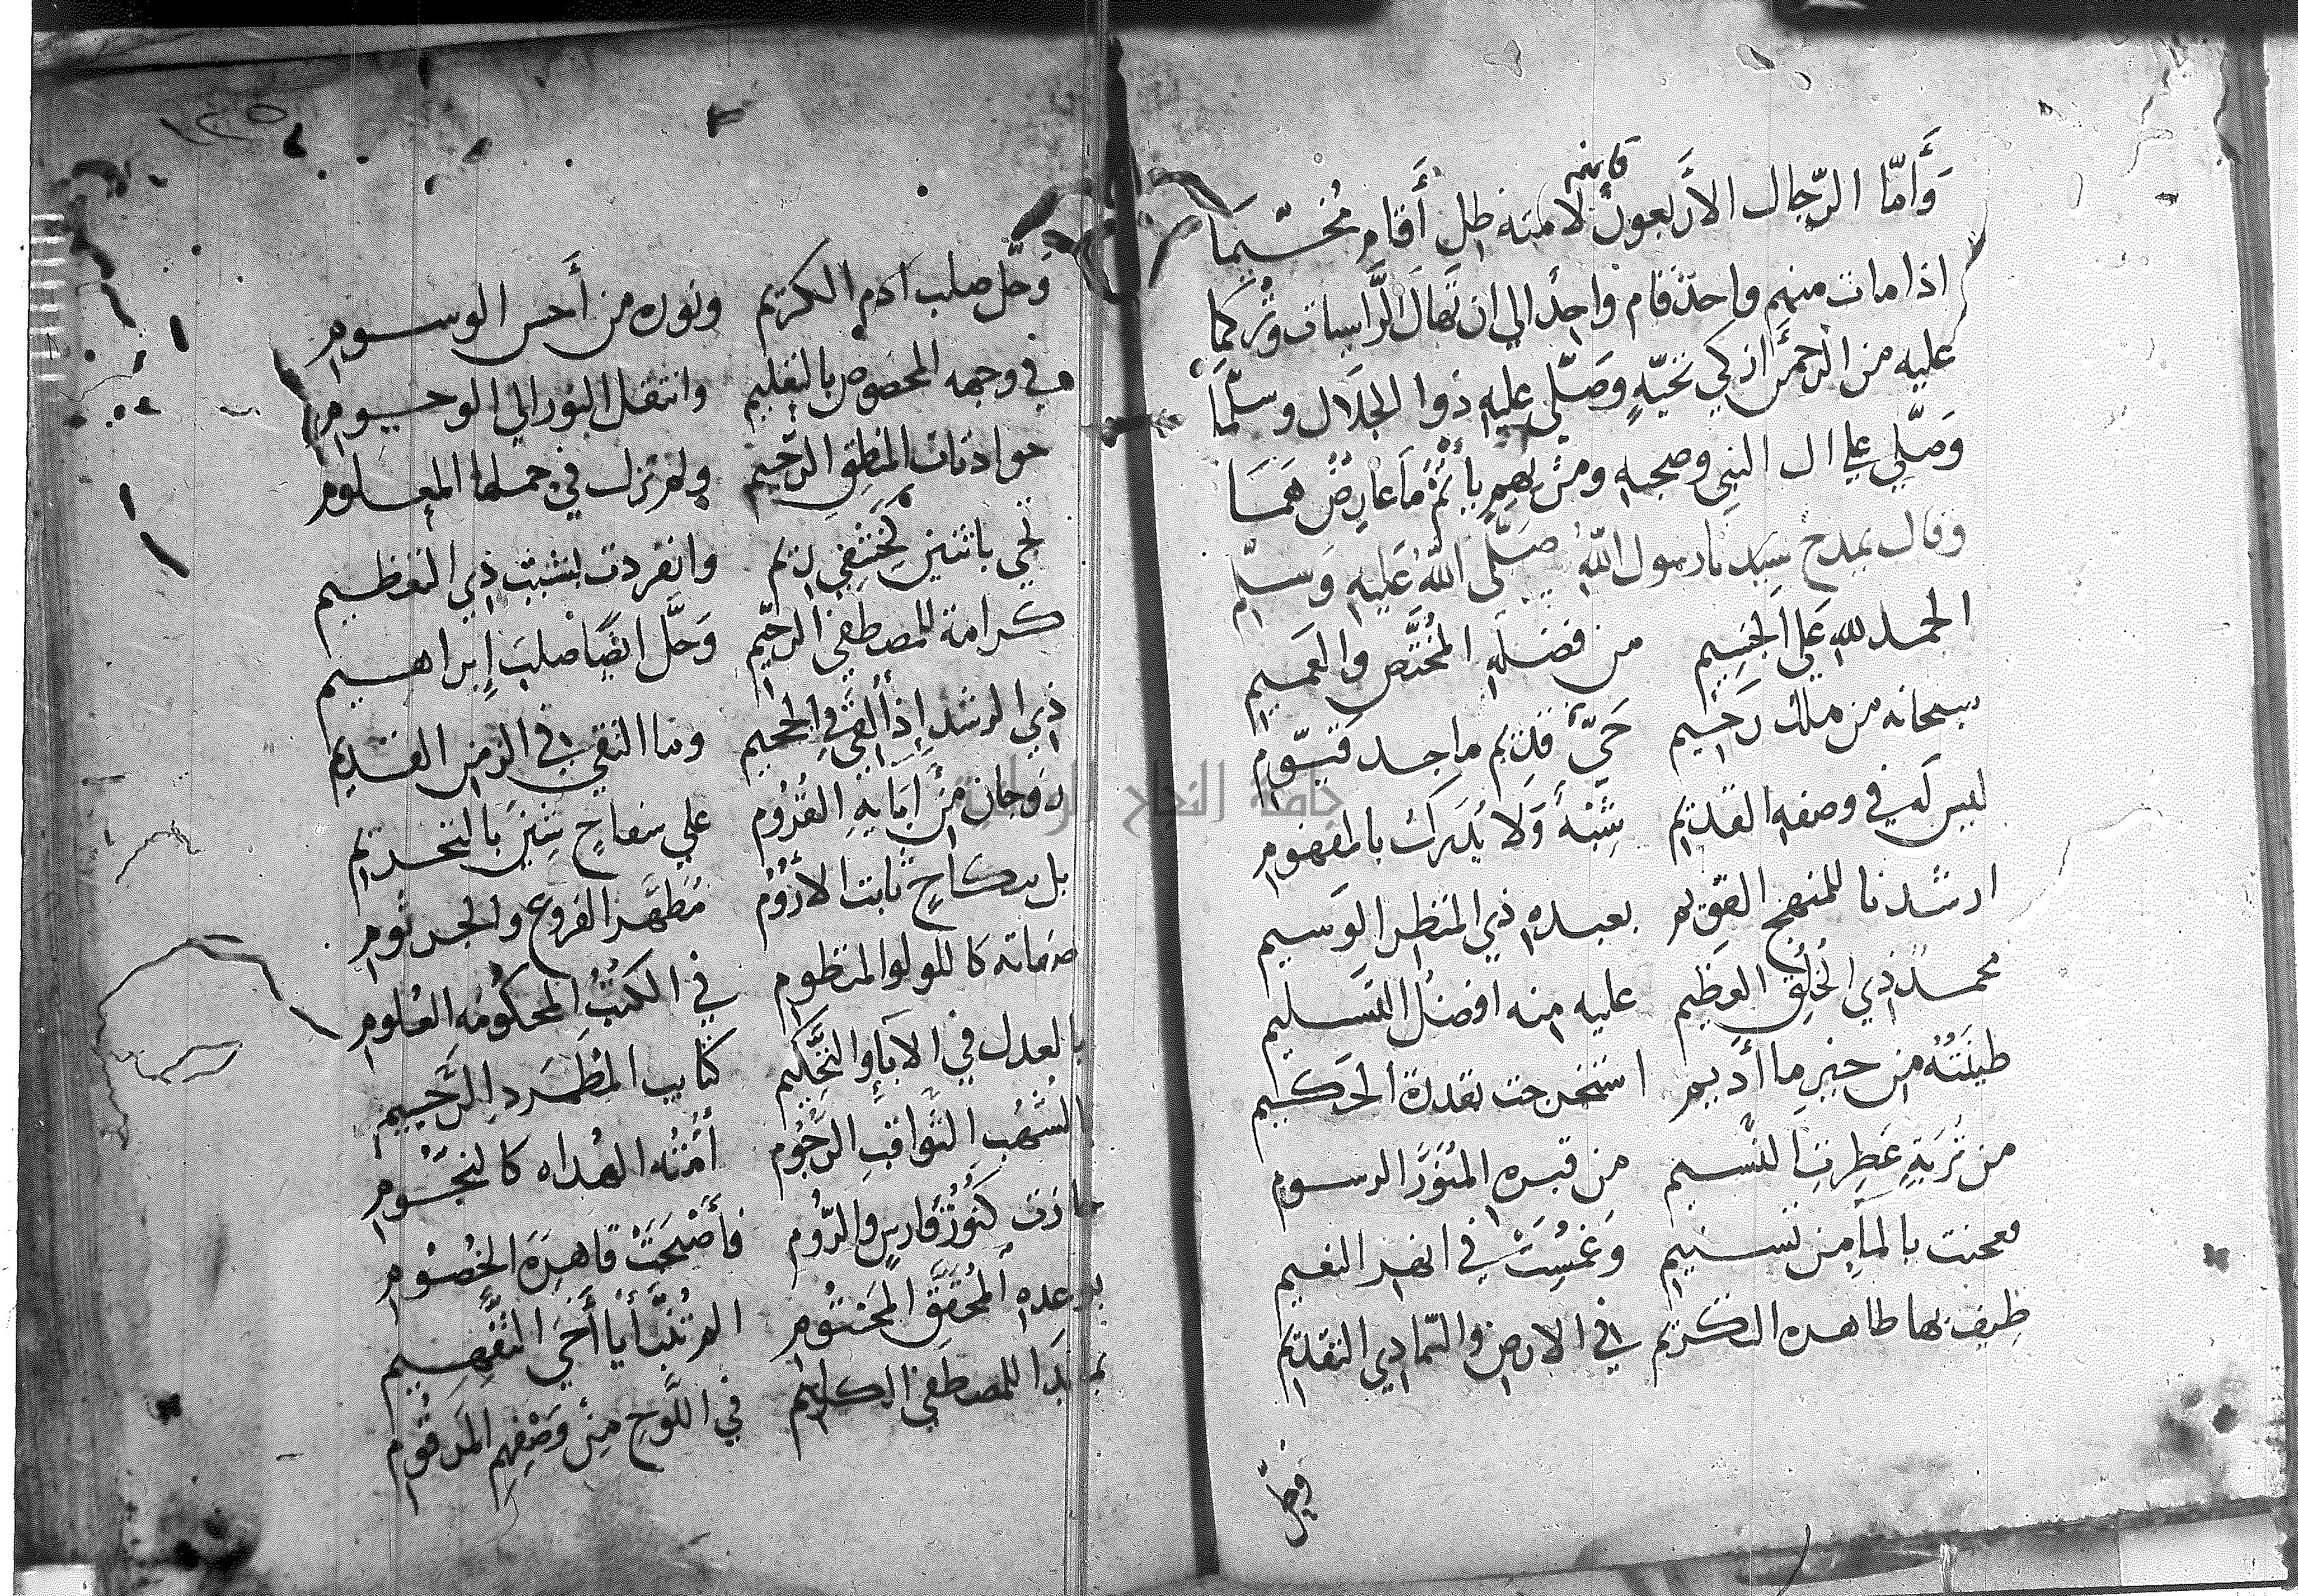 وَأَمَّا الرّجال الأربعون فإنهم لامته ظل أقام مُخَسِّيمَا
اذا مات منهم واحد قام واحدا الي ان تهال الرَّاسيات وتُركما
عليه من الرحمن ازكي تحيّةٍ وصَلّي عليه ذوا الجلال وسلّمَا
وَصَلّي علي ال النبي وصحبه ومن بهم يأتمُّ ما عارض همَا
وقال يمدح سيدنا رسول اللّه صَلّي اللّهُ عَليهِ وَسلّم
الحمد للّه عَلي الجسيم من فضله المُختَصِّ والعَميم
سبحانه من ملك رحيم حَيٍّ قديم ماجد قيّوم
ليس له في وصفه القديم شِبْهٌ وَلا يُدرَك بالمفهوم
ارشدنا للمنهج القويم بعبده ذي المنظر الوَسيم
محمد ذي الخُلُق العظيم عليه منه افضلُ التسليم
طينَتُهُ من خير ما أديم استخرجت بقدرة الحكيم
من تُربَةٍ عَطِرت النّسيم من قبره المنوَّر الرسوم
فعجنت بالماءِ من تسنيم وَغمُسَتْ في انهر النعيم
طيف بها طاهرة التكريم في الارض والتمادي التقديم
وحلّ
وَحَلَّ صلب آدم الكريم ونوره من أحسن الوسوم
في وجهه المخصوص بالتفليم وانتقل النور الي الوحيوم
حوا ذات المنطق الرّخيم ولم تزل في حملها المعلوم
تجي باثنين لخثفي ريم وانفردت بشبث ذي التعظيم
كرامة للمصطفي الرحيم وَحَلّ ايضًا صلبَ إبراهيم
ذي الرشد اذ ألقي في الجحيم وما التقي في الزمن القديم
زوجان من آبايه القروم علي سفاحٍ شِينَ بالتحريم
بل بنكاحٍ ثابت الأروم مُطَهَّر الفروع والجرثوم
صفاته كاللولو المنظوم في الكتُبُ المحكومُه العلوم
بالعدل في الاباءِ والتحكيم كتايب المطَّرد الرّجيم
بالشُهُب الثواقب الرَّجُوم أمّتُه الهداه كالنجوم
حازت كنُوز فارسٍ والرّوم فأصْبَحَتْ قاهرَة الخُصُوم
بوعده المُحَقَّق المَحتُوم المرتَبَّا يا أخي التفهيم
بما بَدا للمصطفي الكليم في اللّوح من وَصْفِهِم المَرقوم
جامعة النجاح الوطنية